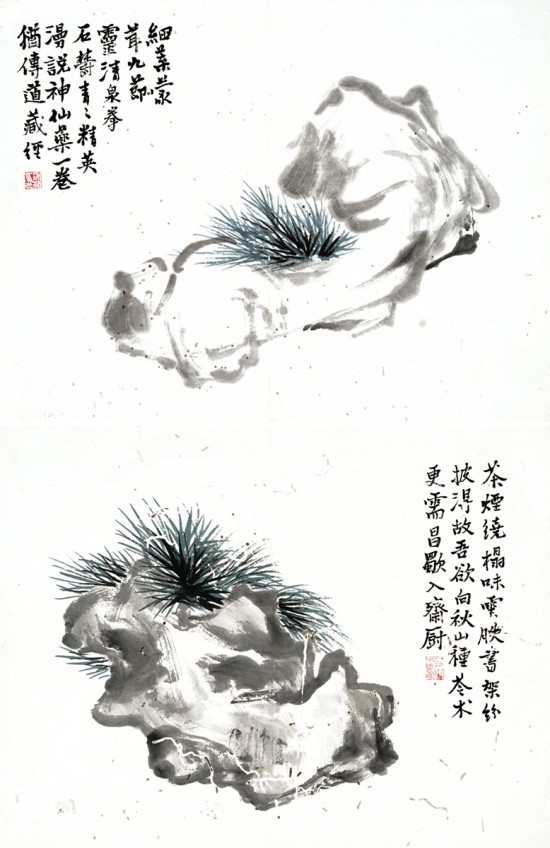 細葉蒙
茸九節
靈清泉拳
石鬱青々精英
漫說神仙藥一卷
猶傳道藏經
茶煙繞榻味雲腴書架紛
披得故吾欲向秋山種苓术
更需昌歜入齋厨